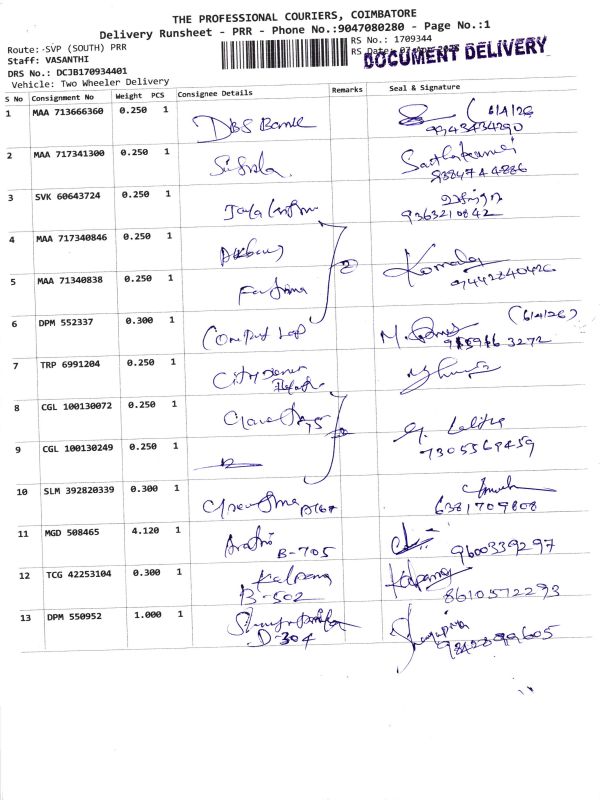 THE PROFESSIONAL COURIERS, COIMBATORE
Delivery Runsheet - PRR - Phone No.:9047080280 - Page No.:1
Route: SVP (SOUTH) PRR
RS No.: 1709344
Staff: VASANTHI
RS Date: 07
DOCUMENT DELIVERY
DRS No.: DCJB170934401
Vehicle: Two Wheeler Delivery
S No Consignment No Weight PCS Consignee Details Remarks Seal & Signature
1 MAA 713666360 0.250 1 DBS Bank (6/4/26
9943434290
2 MAA 717341300 0.250 1
9384744886
3 SVK 60643724 0.250 1 Jaya
9363210842
4 MAA 717340846 0.250 1 2 Komala
9442840426
5 MAA 71340838 0.250 1 Fatima
6 DPM 552337 0.300 1 (6/4/26)
3272
7 TRP 6991204 0.250 1 City
8 CGL 100130072 0.250 1 Lalitha
7305569459
9 CGL 100130249 0.250 1
10 SLM 392820339 0.300 1
6381709808
11 MGD 508465 4.120 1 B-705 9600339297
12 TCG 42253104 0.300 1 Kalpana Kalpana
B-502 8610572293
13 DPM 550952 1.000 1
D-304 9842899605